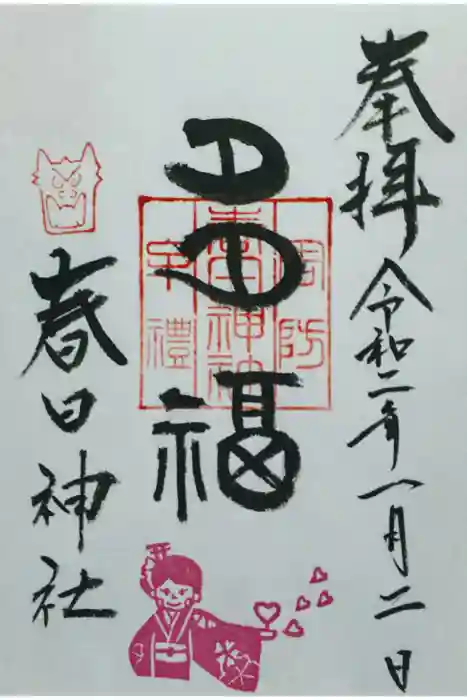 奉拝 令和二年一月二日
多福
周防
春日神社
牟禮
春日神社